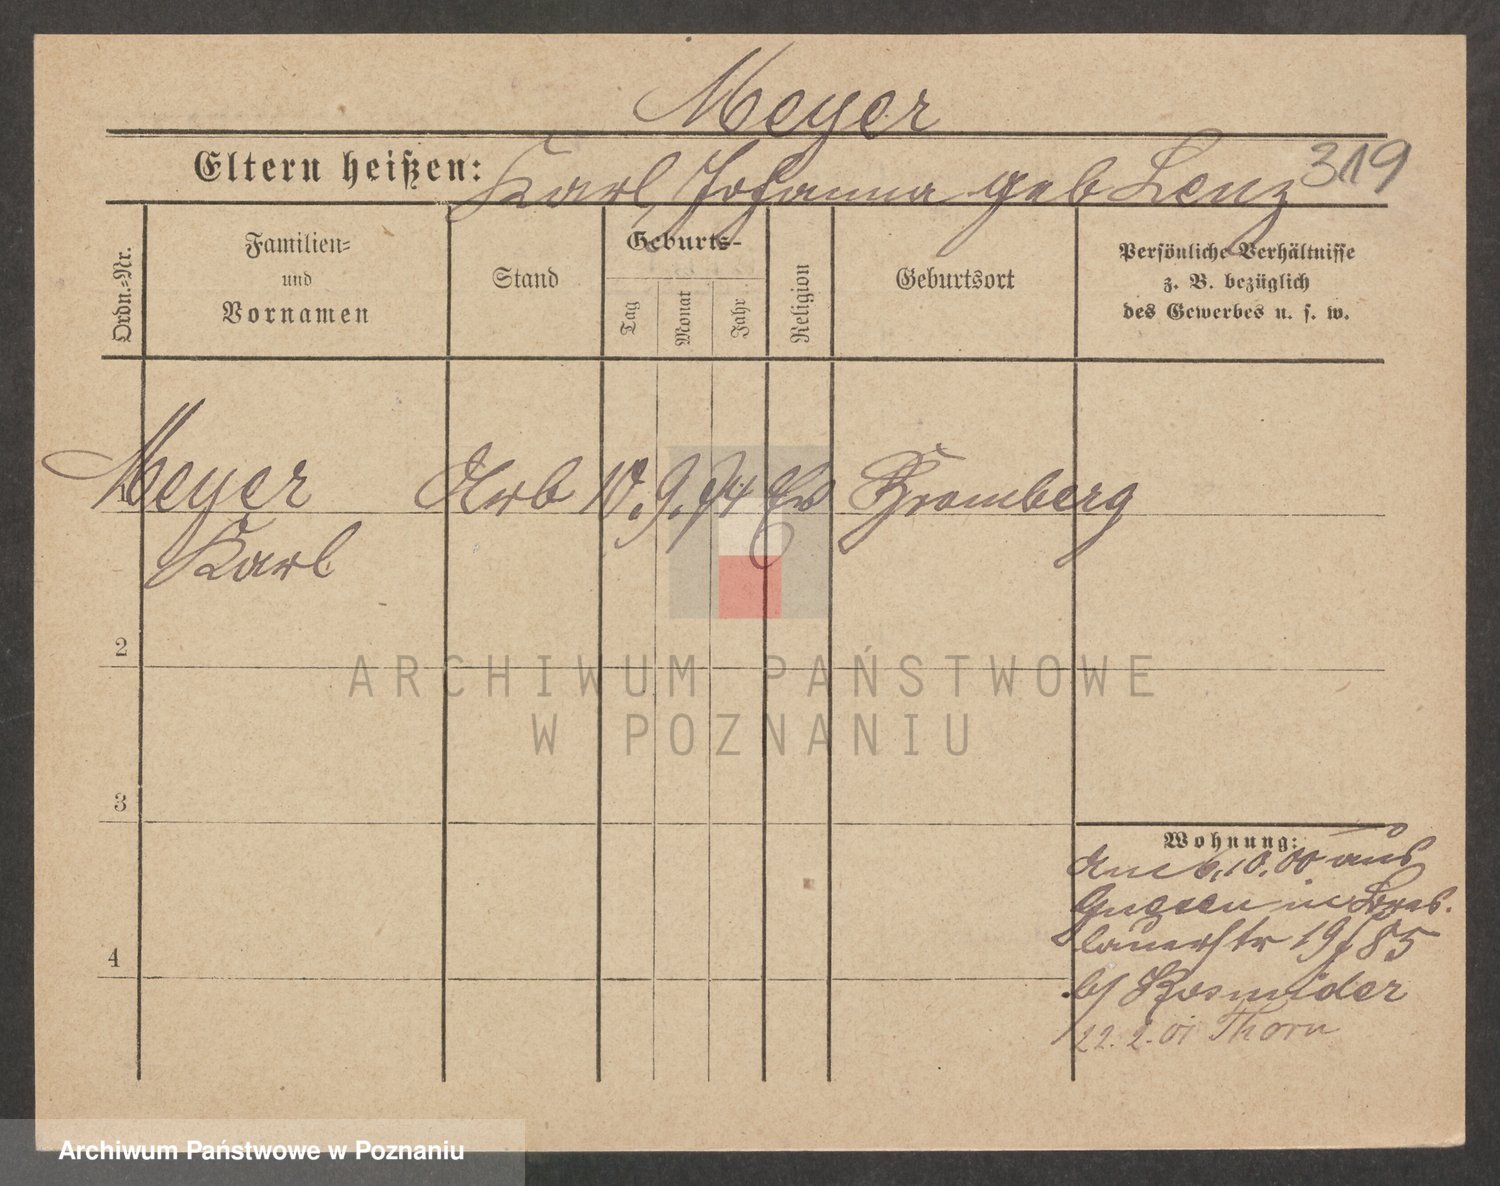 Meyer
Eltern heißen: Karl, Johanna geb Lenz 319
Ordn.-Nr.
Familien-
und
Vornamen
Stand
Geburts-
Tag
Monat
Jahr
Religion
Geburtsort
Persönliche Verhältnisse
z. B. bezüglich
des Gewerbes u. s. w.
1 Meyer Arb 10. 9. 74 Ev Bromberg
Karl
2
ARCHIWUM PAŃSTWOWE
W POZNANIU
3
Wohnung:
Am 6.10.00 aus
Gnesen in Bres.
lauerstr 19/85
b/ Kosmider
4
22.2.01 Thorn
Archiwum Państwowe w Poznaniu